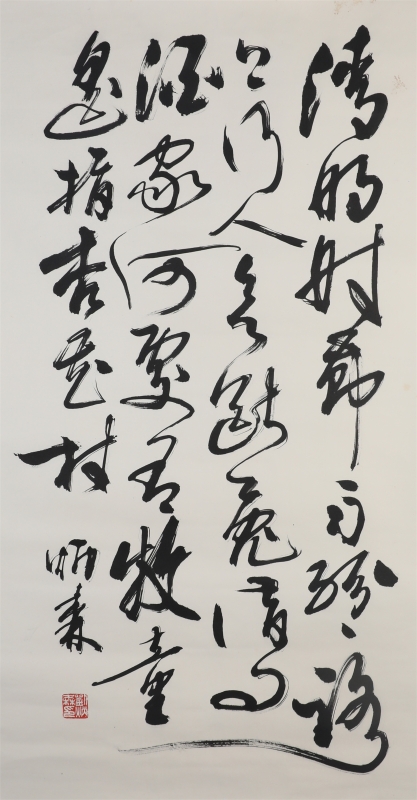 清明時節雨紛〻路
上行人欲斷魂借問
酒家何處有牧童
遙指杏花村
炳森
劉炳森印